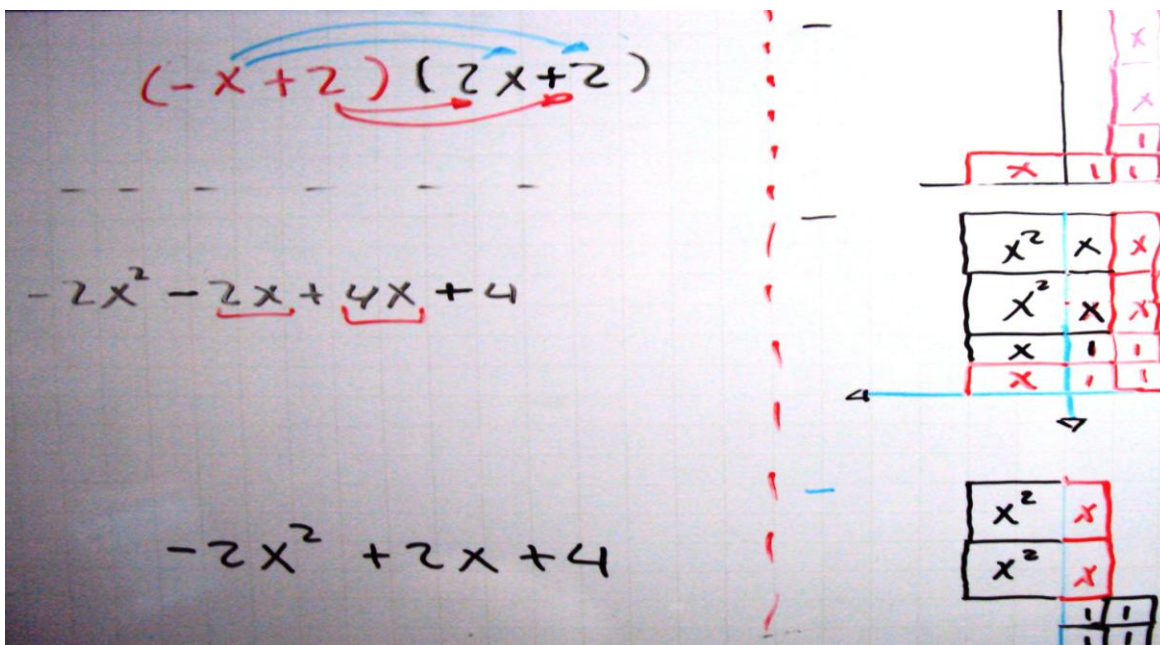 (-x+2)(2x+2)
- - - - - -
-2x² -2x+4x+4
-2x² +2x+4
x
x
1
x 1 1
x² x x
x² x x
x 1 1
x 1 1
x² x
x² x
1 1
1 1